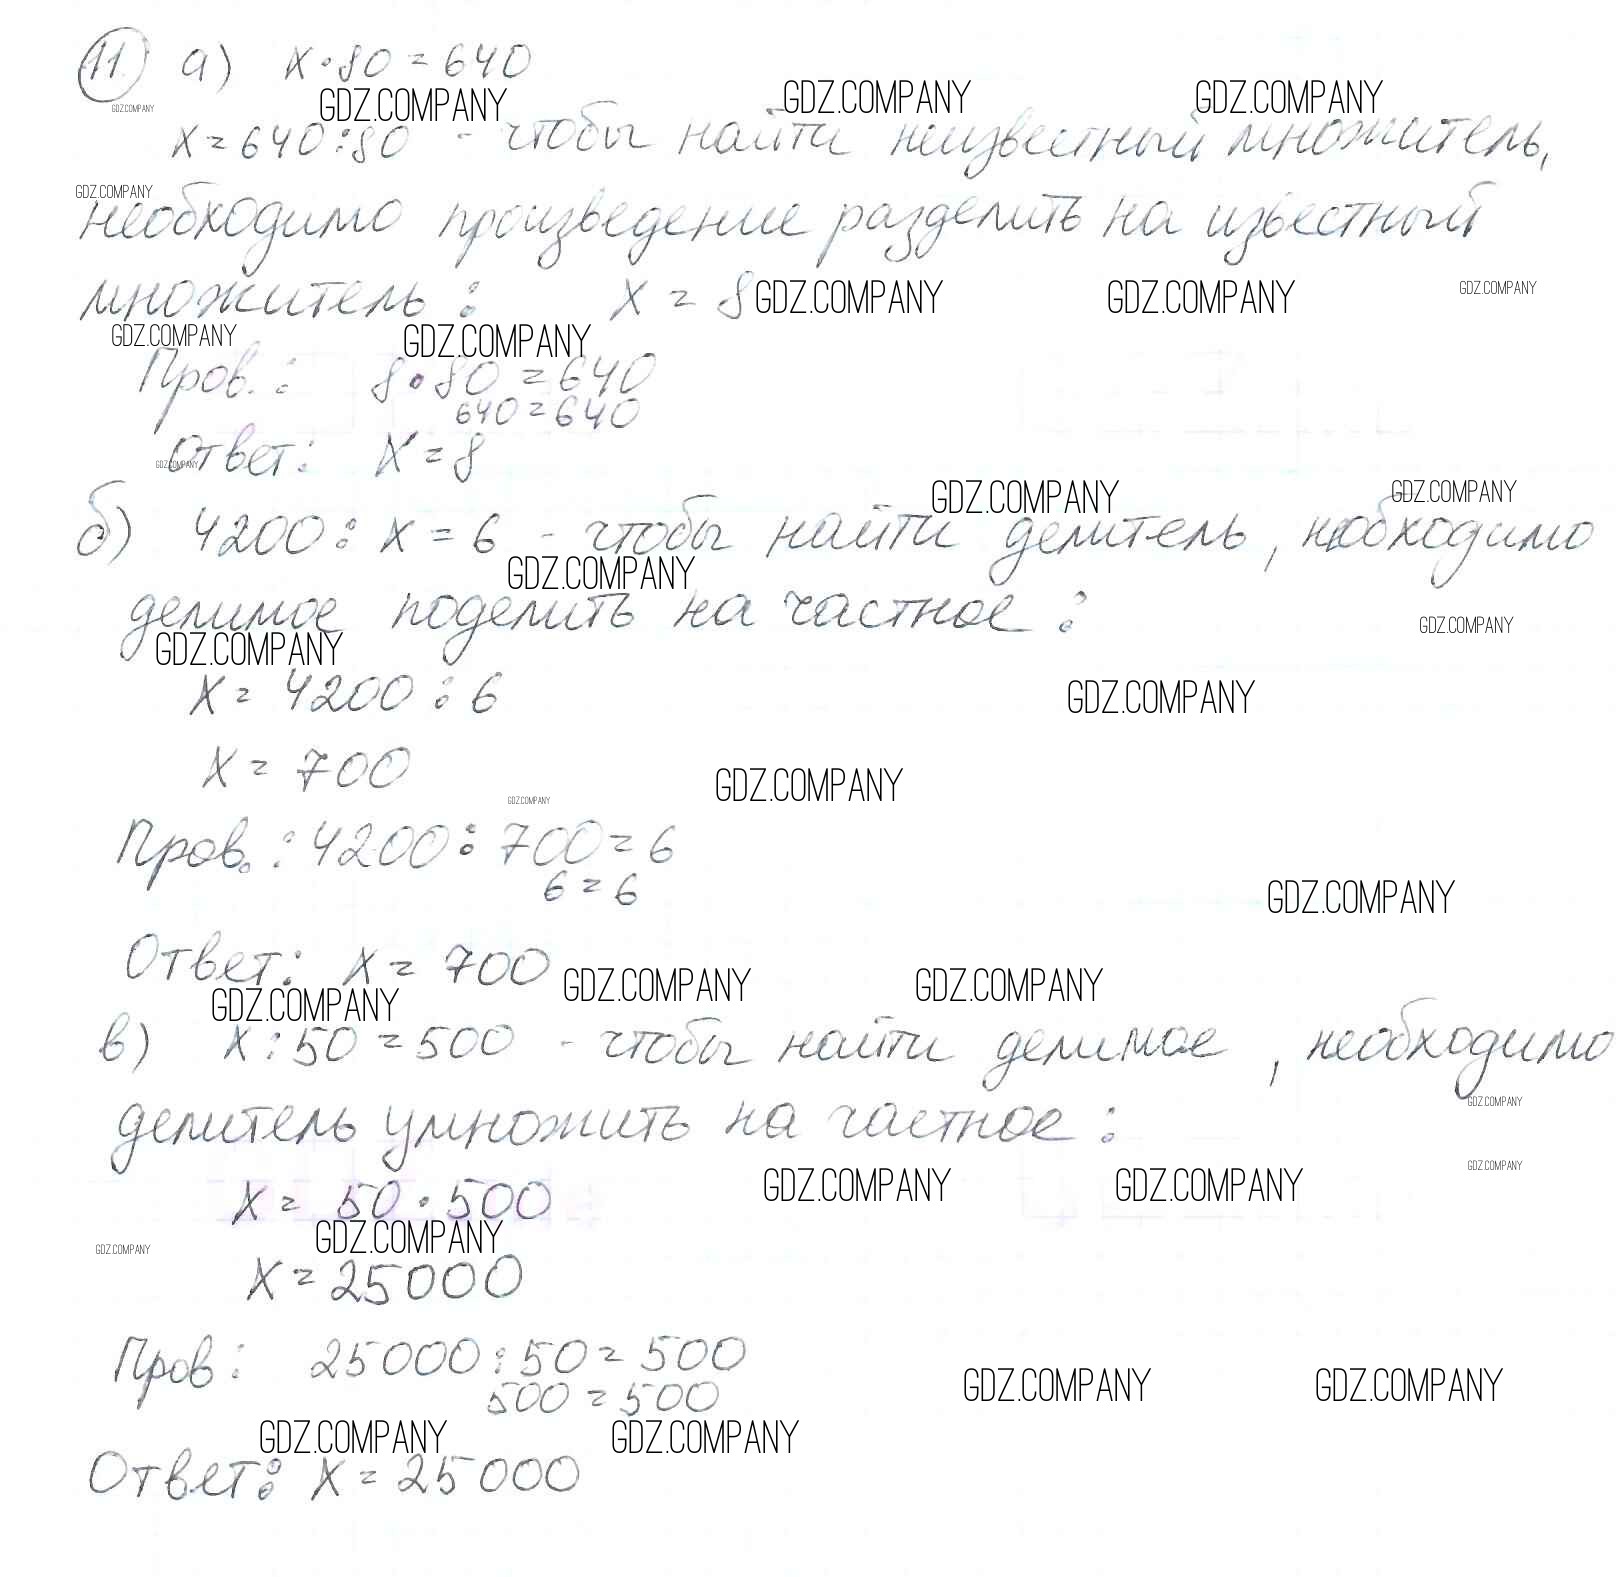 11. а) x·80=640
GDZ.COMPANY GDZ.COMPANY GDZ.COMPANY GDZ.COMPANY
x=640:80 - чтобы найти неизвестный множитель,
GDZ.COMPANY
необходимо произведение разделить на известный
множитель: x=8 GDZ.COMPANY GDZ.COMPANY GDZ.COMPANY
GDZ.COMPANY GDZ.COMPANY
Пров.: 8·80=640
640=640
GDZ.COMPANY Ответ: x=8
GDZ.COMPANY GDZ.COMPANY
б) 4200:x=6 - чтобы найти делитель, необходимо
GDZ.COMPANY
делимое поделить на частное:
GDZ.COMPANY GDZ.COMPANY
x=4200:6 GDZ.COMPANY
x=700 GDZ.COMPANY
GDZ.COMPANY
Пров.: 4200:700=6
6=6 GDZ.COMPANY
Ответ: x=700 GDZ.COMPANY GDZ.COMPANY
GDZ.COMPANY
в) x:50=500 - чтобы найти делимое, необходимо
GDZ.COMPANY
делитель умножить на частное:
GDZ.COMPANY
x=50·500 GDZ.COMPANY GDZ.COMPANY
GDZ.COMPANY GDZ.COMPANY
x=25000
Пров: 25000:50=500
500=500 GDZ.COMPANY GDZ.COMPANY
GDZ.COMPANY GDZ.COMPANY
Ответ: x=25000